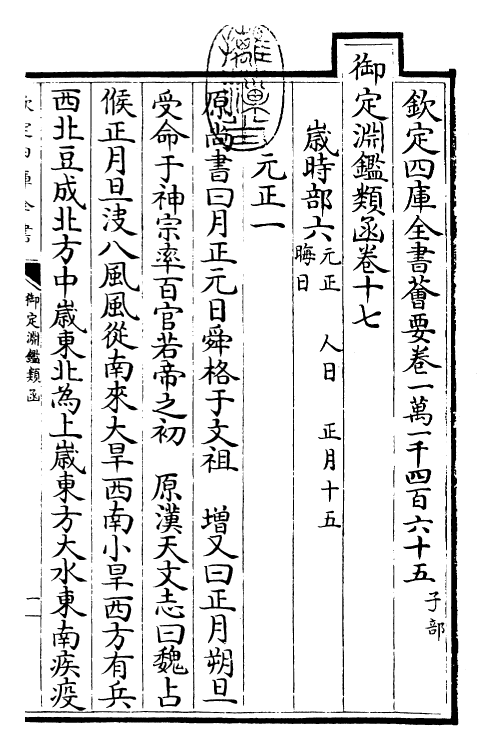 欽定四庫全書薈要卷一萬一千四百六十五 子部
御定淵鑑類函卷十七
歲時部六 元正 人日 正月十五 晦日
元正一
原尚書曰月正元日舜格于文祖 增又曰正月朔旦
受命于神宗率百官若帝之初 原漢天文志曰魏占
候正月旦決八風風從南來大旱西南小旱西方有兵
西北豆成北方中歲東北為上歲東方大水東南疾疫
御定淵鑑類函
一